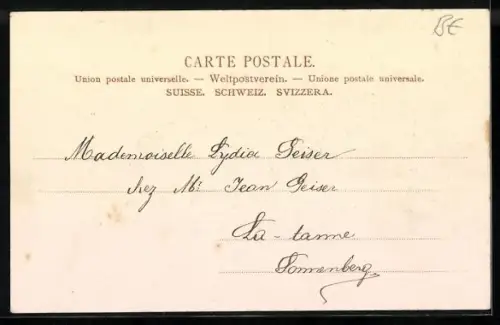 BE
CARTE POSTALE.
Union postale universelle. — Weltpostverein. — Unione postale universale.
SUISSE. SCHWEIZ. SVIZZERA.
Mademoiselle Lydia Geiser
chez Mr Jean Geiser
La-tanne
Sonnenberg